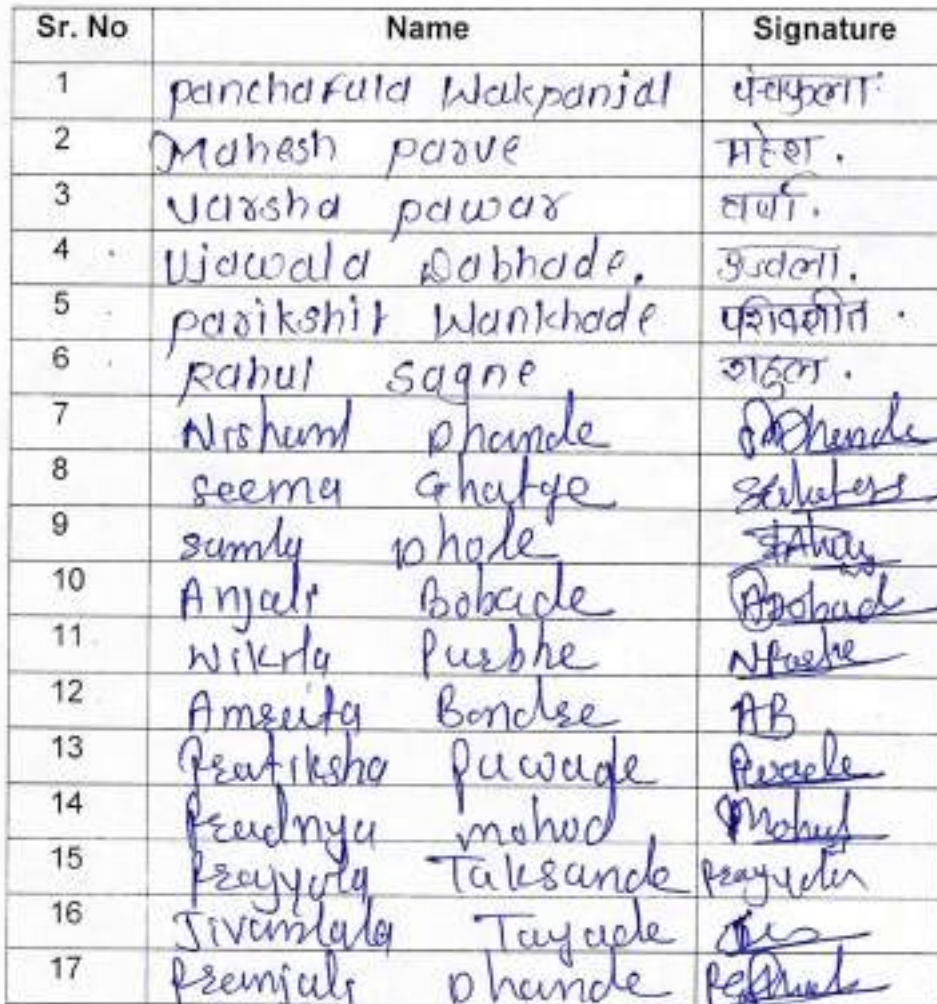 Sr. No Name Signature
1 panchafula Wakpanjal पंचफुला
2 Mahesh parve महेश.
3 varsha pawar वर्षा.
4 Ujawala Dabhade. उज्वला.
5 parikshit Wankhade परिक्षीत.
6 Rahul sagne राहुल.
7 Nishant Dhande Dhande
8 seema Ghatge
9 Dhole
10 Anjali Bobade
11 Nikita
12 Amruta Bondre AB
13 Pratiksha Pawade
14 Pradnya mohod Mohod
15 Taksande
16 Tayade
17 Premjali Dhande